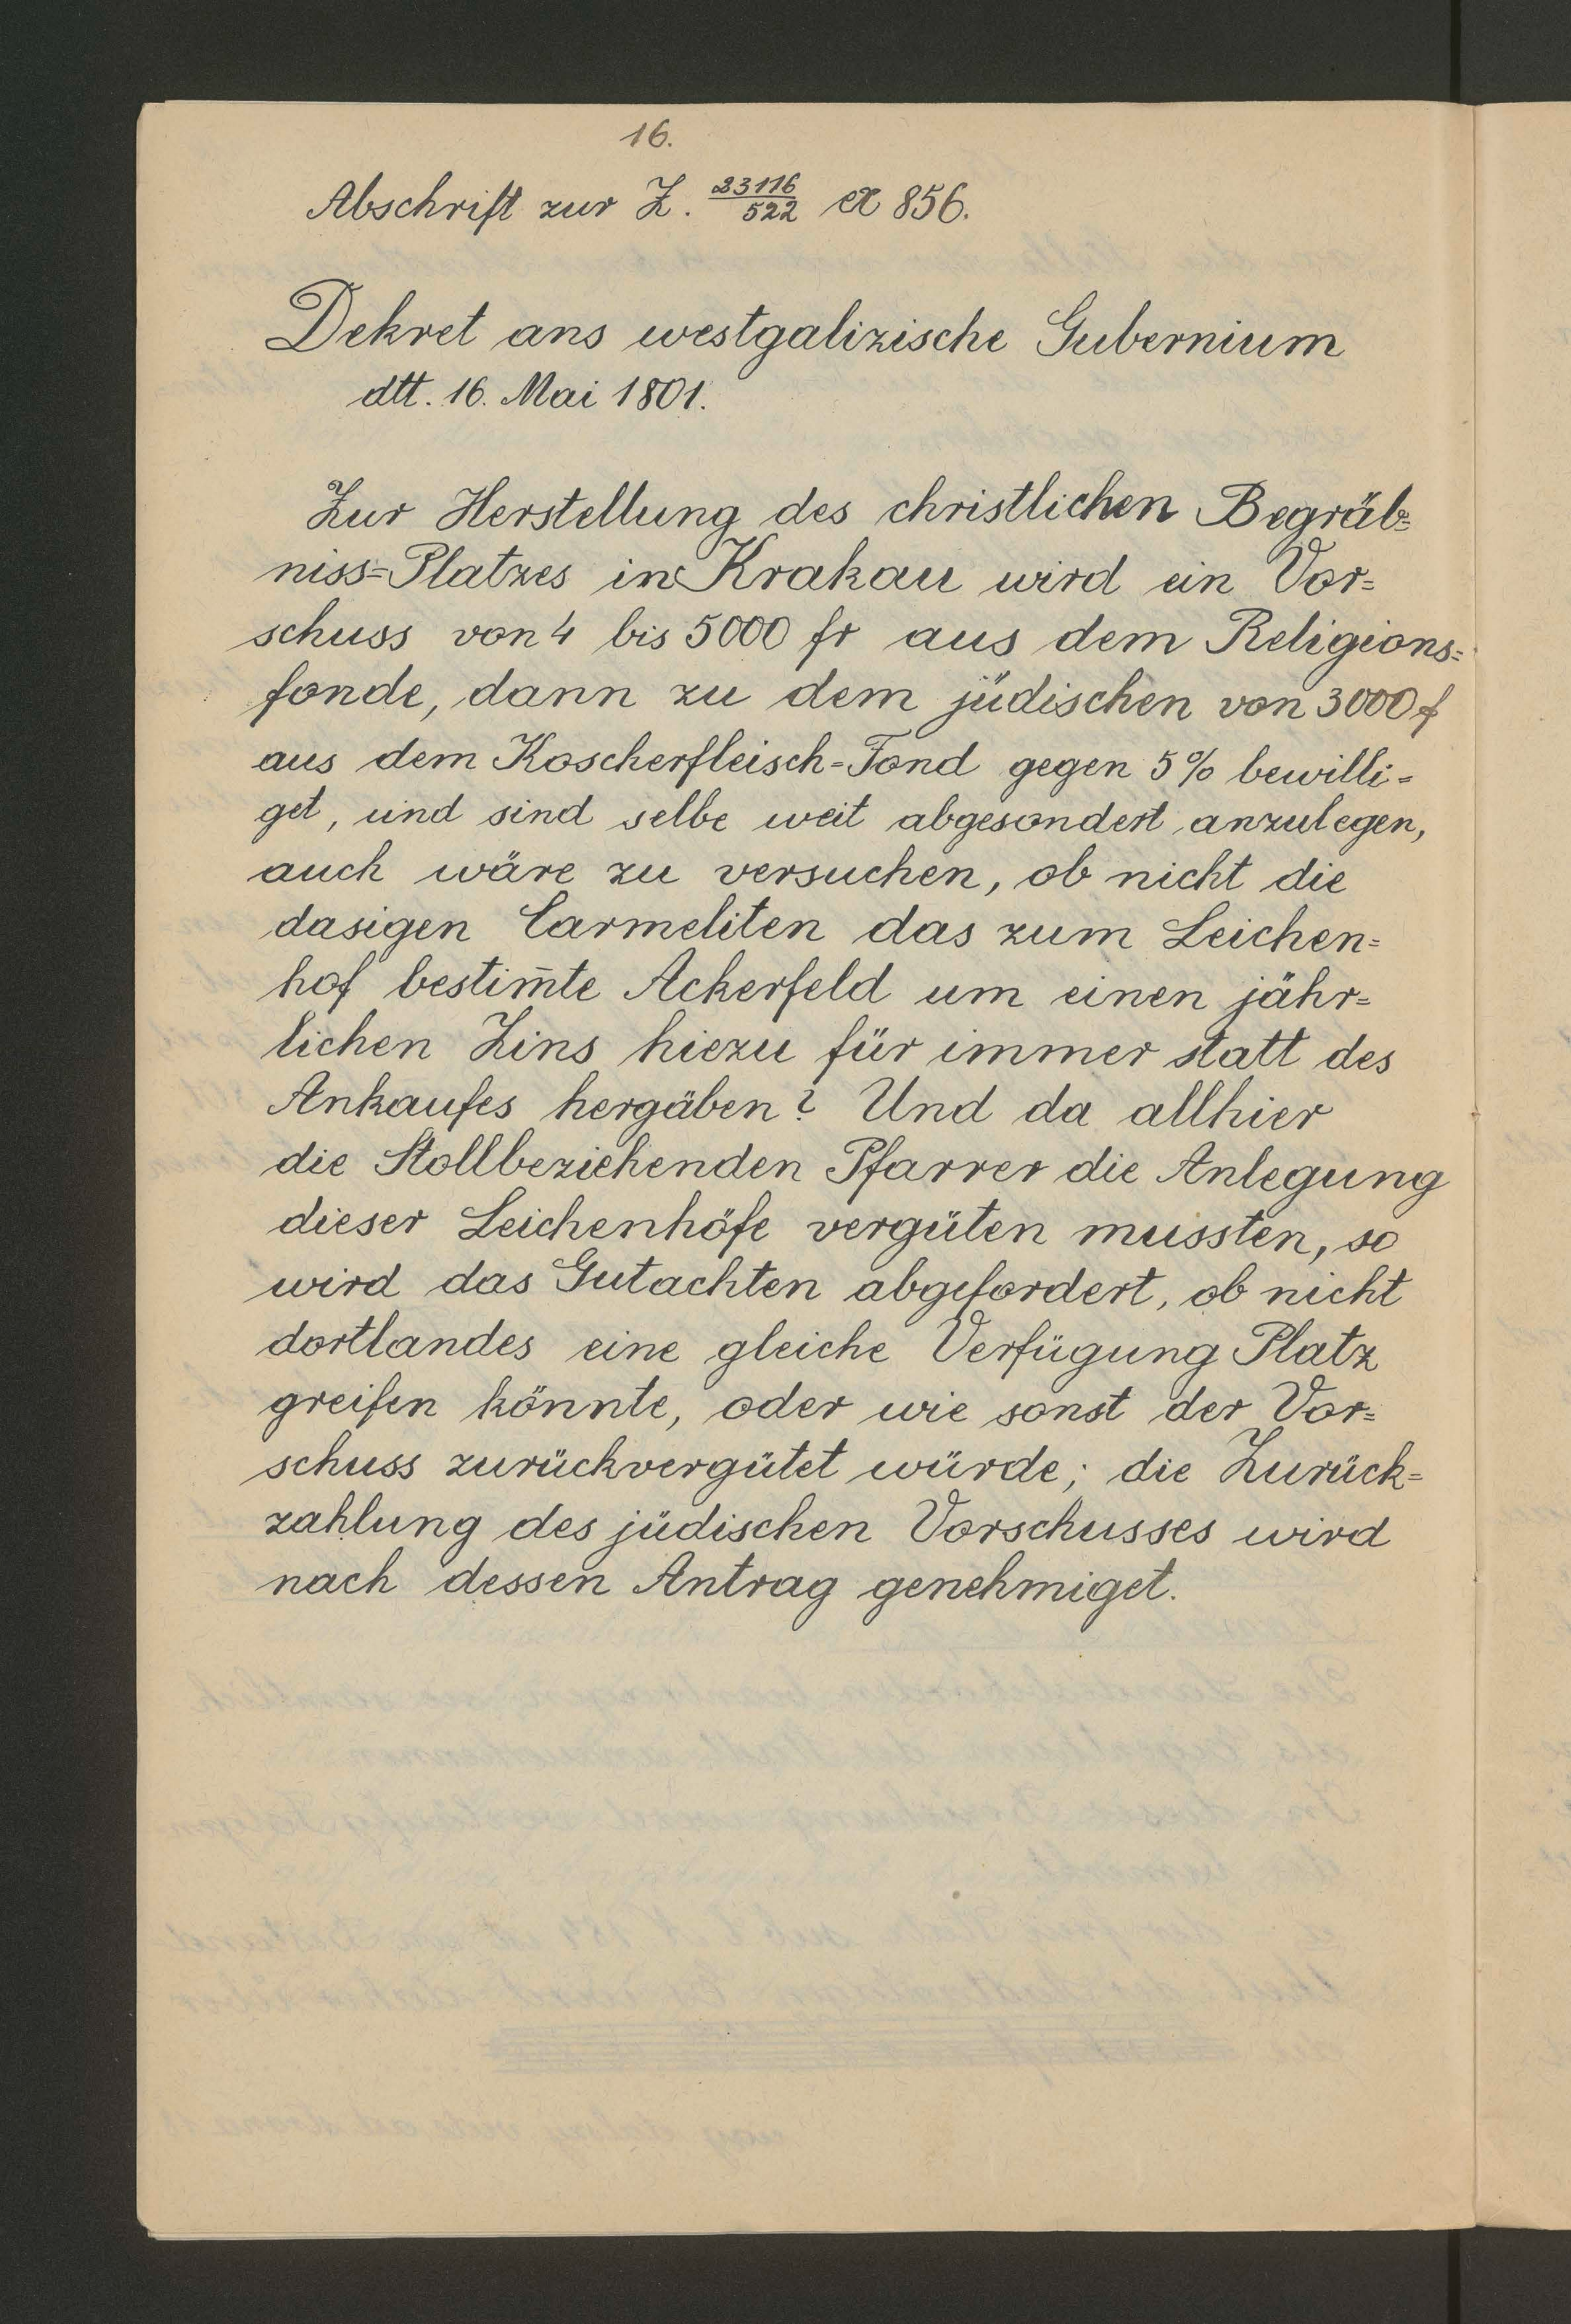 16.
Abschrift zur Z. 23116/522 ex 856.
Dekret ans westgalizische Gubernium
dtt. 16. Mai 1801.
Zur Herstellung des christlichen Begräb=
niss=Platzes in Krakau wird ein Vor=
schuss von 4 bis 5000 fr aus dem Religions=
fonde, dann zu dem jüdischen von 3000 f
aus dem Koscherfleisch-Fond gegen 5% bewilli=
get, und sind selbe weit abgesondert anzulegen,
auch wäre zu versuchen, ob nicht die
dasigen Carmeliten das zum Leichen=
hof bestim̅te Ackerfeld um einen jähr=
lichen Zins hiezu für immer statt des
Ankaufes hergäben? Und da allhier
die Stollbeziehenden Pfarrer die Anlegung
dieser Leichenhöfe vergüten mussten, so
wird das Gutachten abgefordert, ob nicht
dortlandes eine gleiche Verfügung Platz
greifen könnte, oder wie sonst der Vor=
schuss zurückvergütet würde; die Zurück=
zahlung des jüdischen Vorschusses wird
nach dessen Antrag genehmiget.